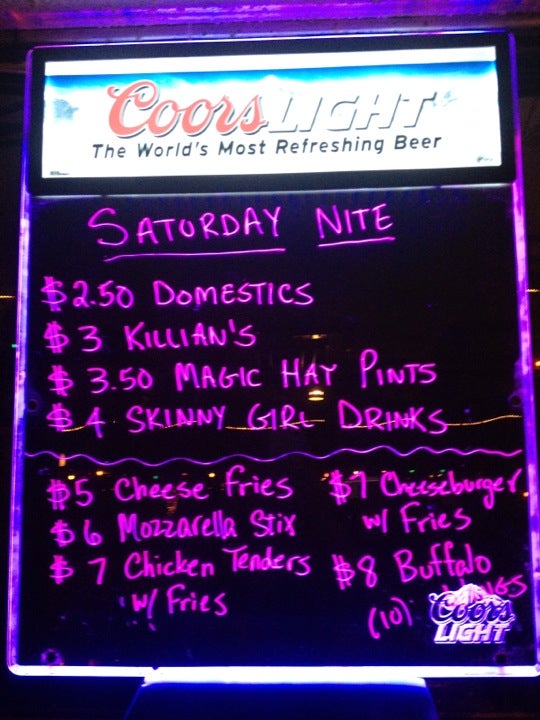 Coors LIGHT
The World's Most Refreshing Beer
SATURDAY NITE
$2.50 DOMESTICS
$3 KILLIAN'S
$3.50 MAGIC HAT PINTS
$4 SKINNY GIRL DRINKS
$5 Cheese fries
$6 Mozzarella Stix
$7 Chicken Tenders
w/ Fries
$7 Cheeseburger
w/ Fries
$8 Buffalo
(10) WINGS
Coors
LIGHT